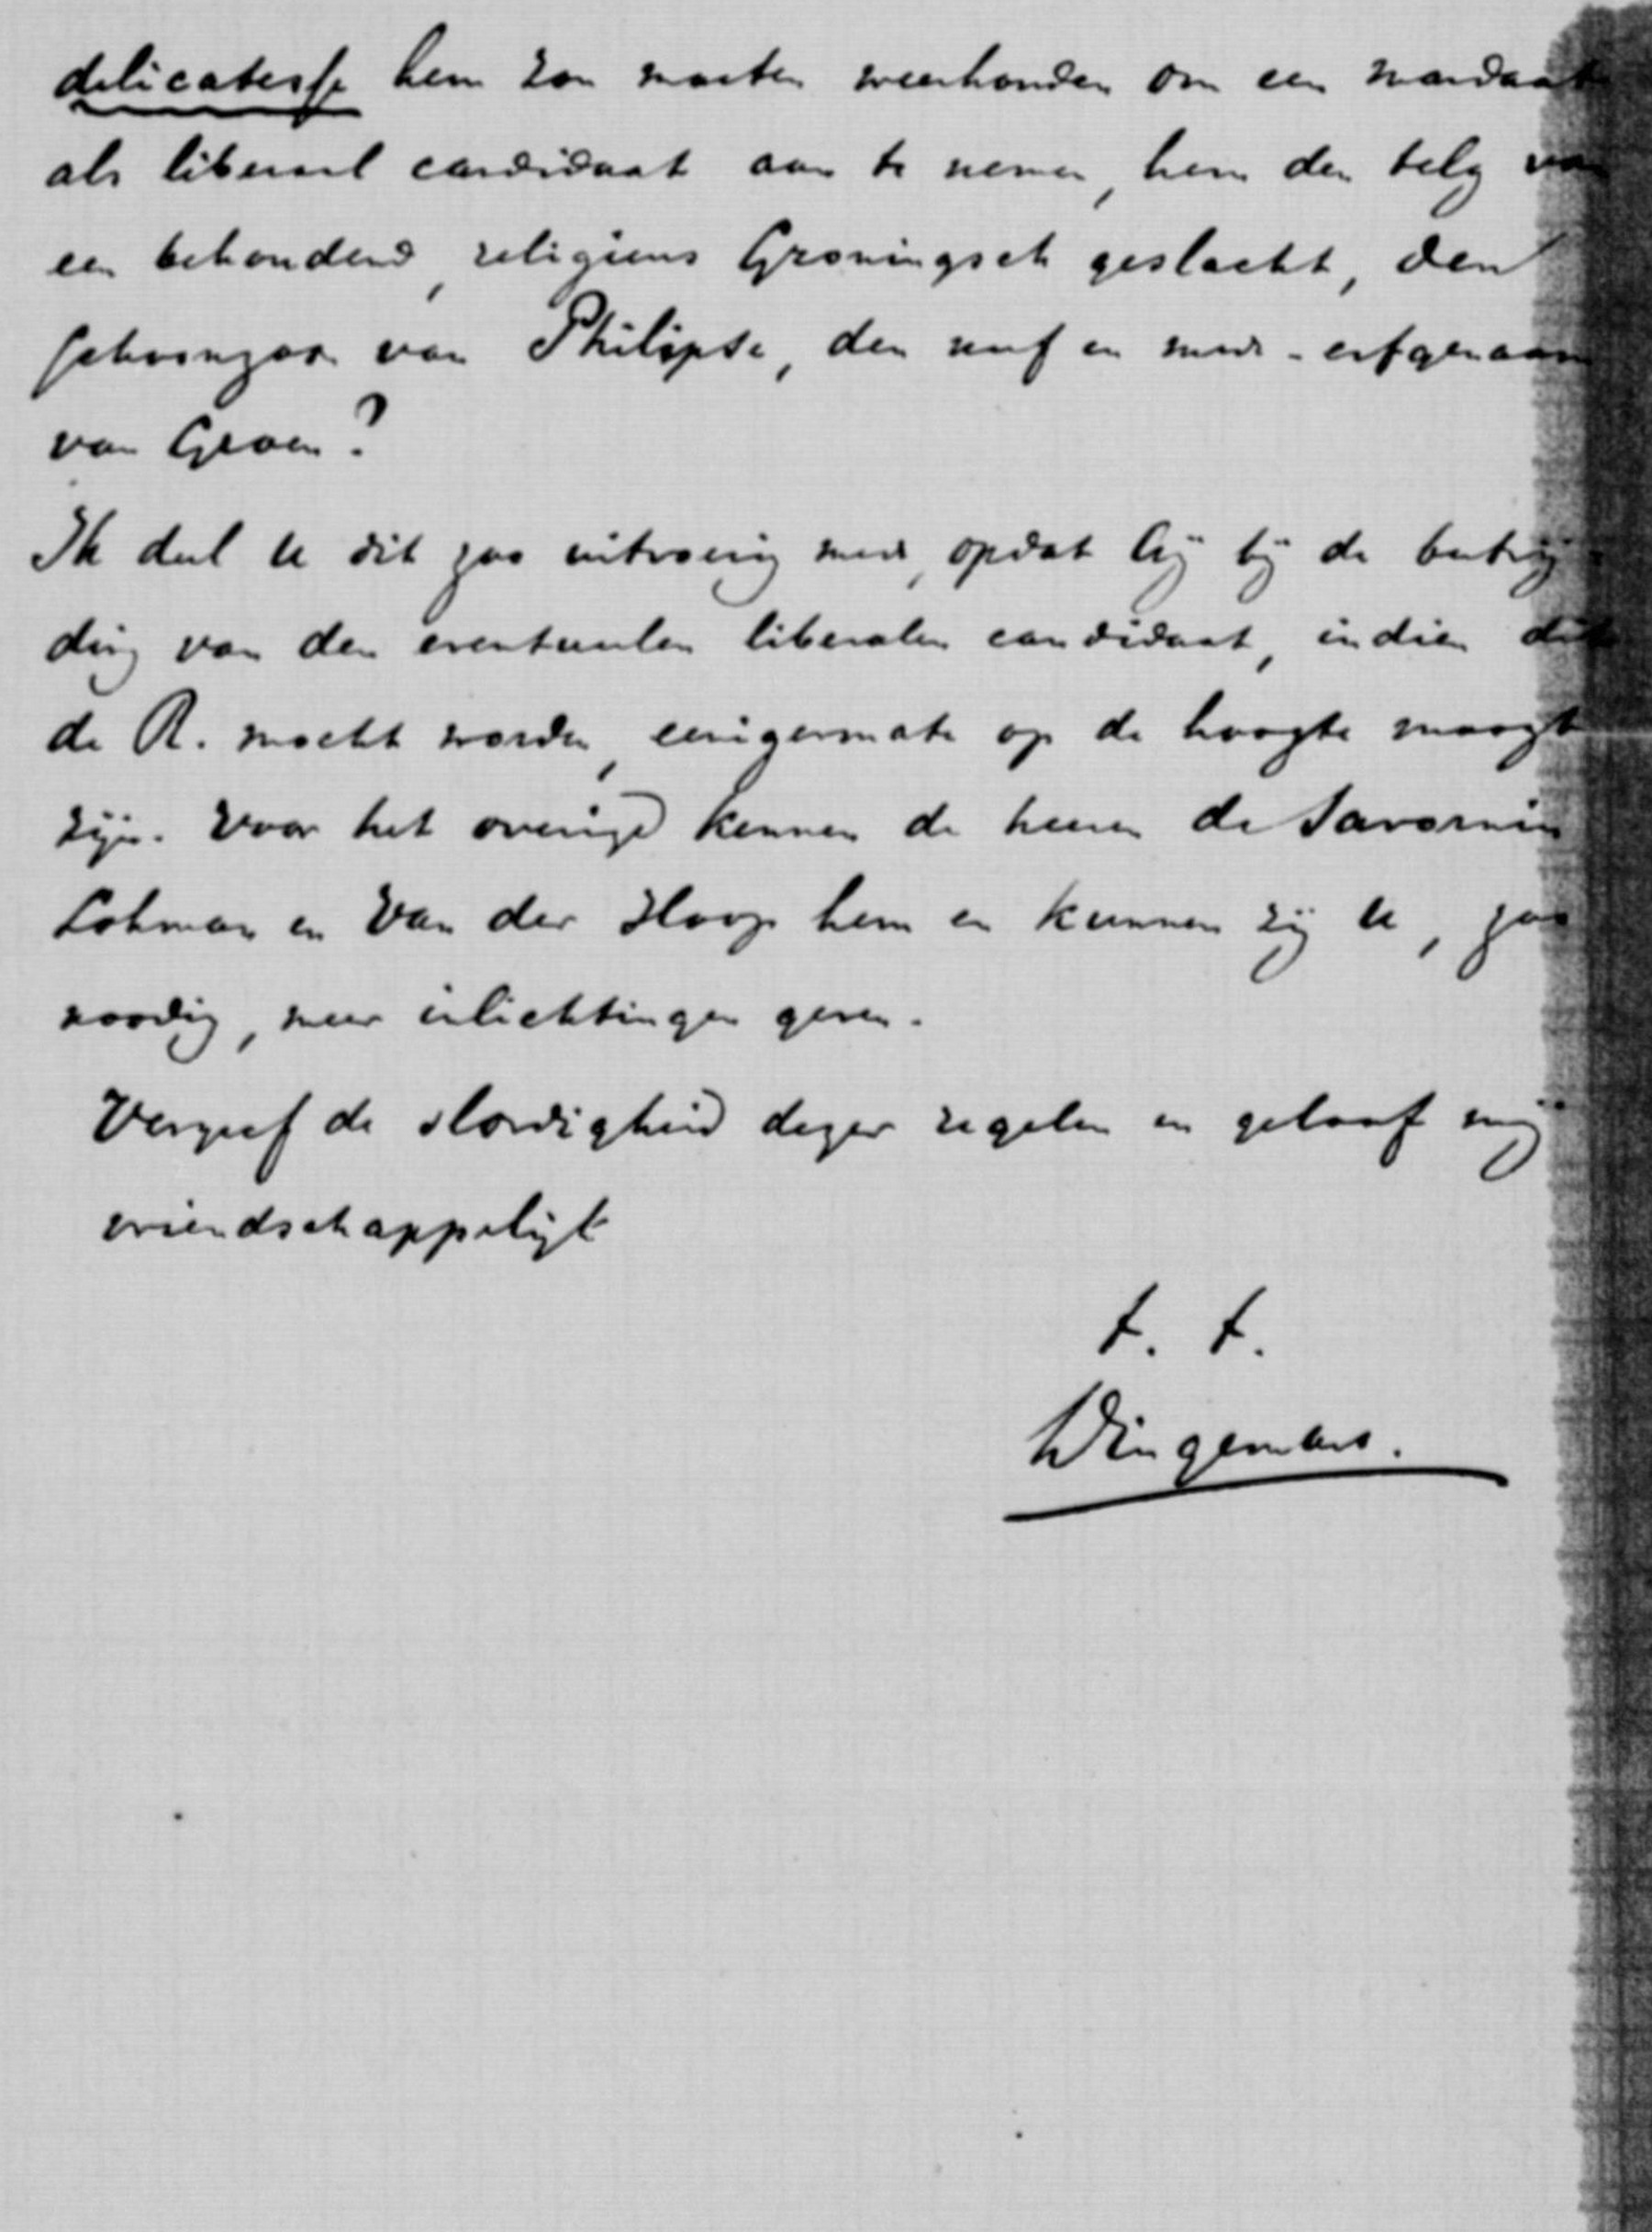 delicatesse hem zou moeten weerhouden om een mandaat
als liberaal candidaat aan te nemen, hem den telg van
een behoudend, religieus Groningsch geslacht, den
schoonzoon van Philipse, den neef en mede-erfgenaam
van Groen?
Ik deel U dit zoo uitvoerig mede, opdat Gij bij de bestrij
ding van den eventueelen liberalen candidaat, indien dit
de R. mocht worden, eenigermate op de hoogte moogt
zijn. Voor het overige kennen de heeren de Savornin
Lohman en Van der Hoop hem en kunnen zij U, zoo
noodig, meer inlichtingen geven.
Vergeef de slordigheid dezer regelen en geloof mij
vriendschappelijk
t. t.